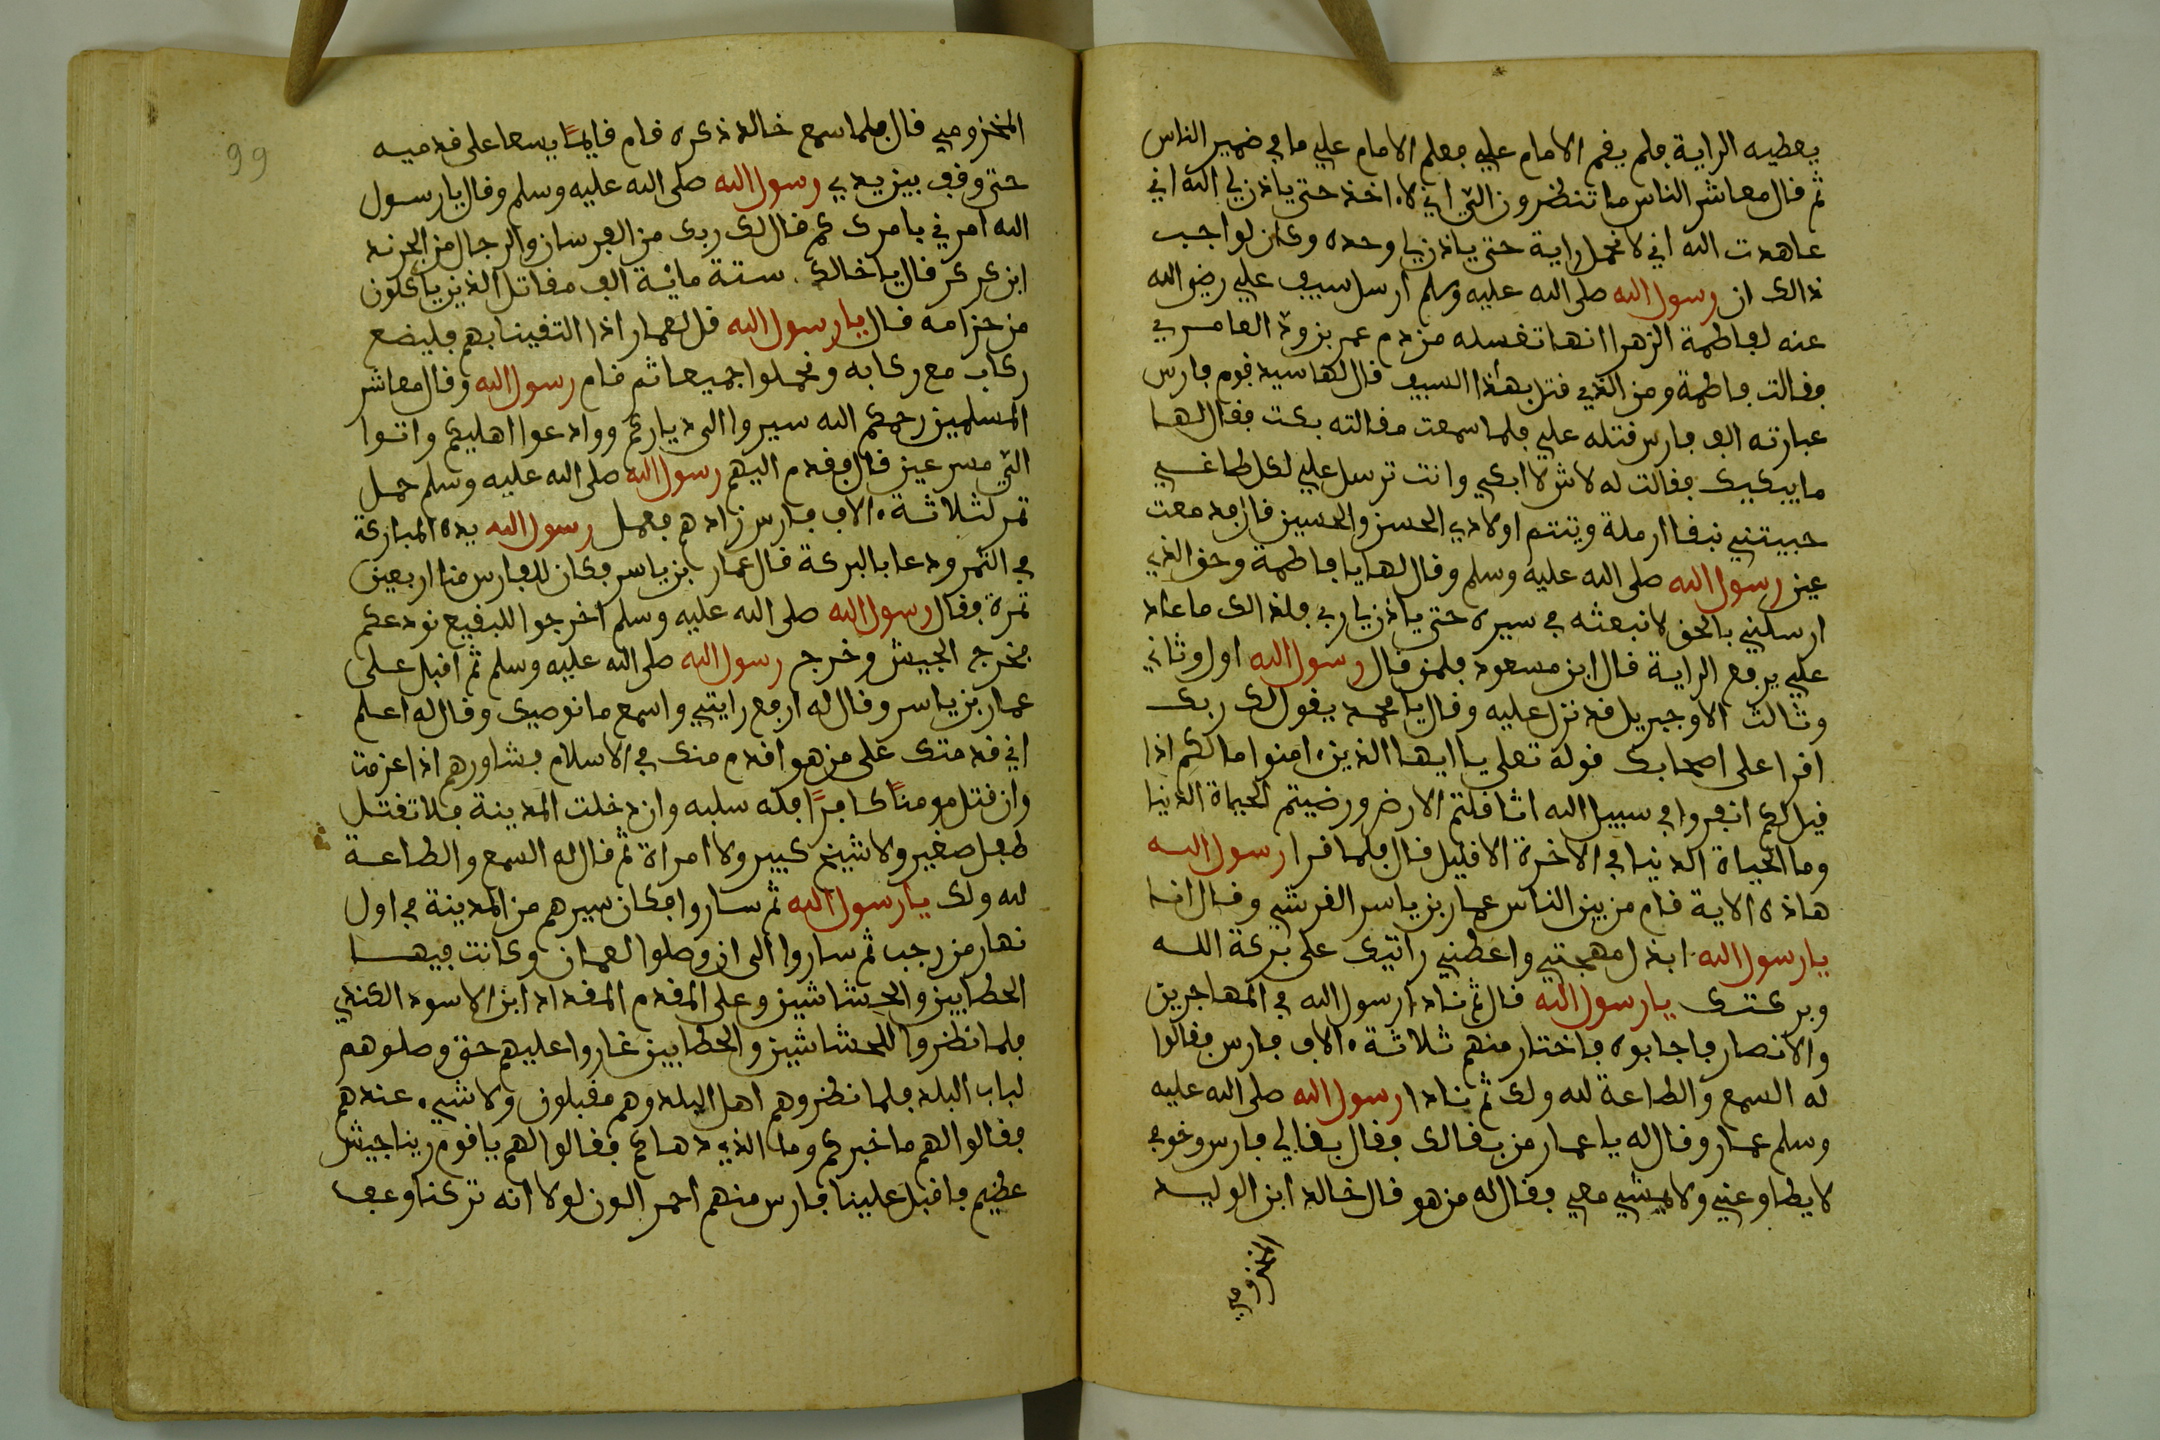 يعطيه الراية فلم يقم الامام علي فعلم الامام علي ما في ضمير الناس
ثم قال معاشر الناس ما تنظرون اليّ اني لا اخذ حتى ياذن لي الله اني
عاهدت الله اني لا نحمل راية حتى ياذن يا وحده وكان لواجب
ذالك ان رسول الله صلى الله عليه وسلم ارسل سيف علي رضي الله
عنه لفاطمة الزهرا انها تغسله من دم عمر بن ود العامري
فقالت فاطمة ومن الذي قتل بهذا السيف قال لها سيد قوم فارس
عبارته الف فارس قتله علي فلما سمعت مقالته بكت فقال لها
ما يبكيك فقالت له لاش لا ابكي وانت ترسل علي لكل طاغي
حبيتني نبقا ارملة ويتتم اولادي الحسن والحسين قال فدمعت
عين رسول الله صلى الله عليه وسلم وقال لها يا فاطمة وحق الذي
ارسلني بالحق لا نبعثه في سيره حتى ياذن يا ربي فلذالك ما عاد
علي يرفع الراية قال ابن مسعود فلمن قال رسول الله اول وثاني
وثالث الا وجبريل قد نزل عليه وقال يا محمد يقول لك ربك
اقرا على اصحابك قوله تعلى يا ايها الذين ءامنوا ما لكم اذا
قيل لكم انفروا في سبيل الله اثاقلتم الارض ورضيتم الحياة الدنيا
وما الحياة الدنيا في الاخرة الا قليل قال فلما قرا رسول الله
هاذه الاية قام من بين الناس عمار بن ياسر القرشي وقال انا
يا رسول الله ابذل مهجتي واعطني راتيك على بركة الله
وبركتك يا رسول الله قال ثم نادا رسول الله في المهاجرين
والانصار فاجابوه فاختار منهم ثلاثة ءالاف فارس فقالوا
له السمع والطاعة لله ولك ثم نادا رسول الله صلى الله عليه
وسلم عمار وقال له يا عمار من بقا لك فقال بقا لي فارس وخوفي
لا يطاوعني ولا يمشي معي فقال له من هو قال خالد ابن الوليد
المخزومي
99
المخزومي قال فلما سمع خالد ذكره قام قايمًا يسعا على قدميه
حتى وقف بين يدي رسول الله صلى الله عليه وسلم وقال يا رسول
الله امرني بامرك كم قال لك ربك من الفرسان والرجال من الجرند
ابن كركر قال يا خالد ستة مائة الف مقاتل الذين ياكلون
من حزامه قال يا رسول الله قل لعمار اذا التقينا بهم فليضع
ركاب مع ركابه ونحملوا جميعا ثم قام رسول الله وقال معاشر
المسلمين رحمكم الله سيروا الى دياركم ووادعوا اهليكم واتوا
اليّ مسرعين قال فقدم اليهم رسول الله صلى الله عليه وسلم حمل
تمر لثلاثة ءالاف فارس زادهم فعمل رسول الله يده المباركة
في التمر ودعا بالبركة قال عمار بن ياسر فكان للفارس منا اربعين
تمرة فقال رسول الله صلى الله عليه وسلم اخرجوا للبقيع نودعكم
فخرج الجيش وخرج رسول الله صلى الله عليه وسلم ثم اقبل على
عمار بن ياسر وقال له ارفع رايتي واسمع ما نوصيك وقال له اعلم
اني قدمتك على من هو اقدم منك في الاسلام فشاورهم اذا عزمت
وان قتل مومنًا كافرًا فله سلبه وان دخلت المدينة فلا تقتل
طفل صغير ولا شيخ كبير ولا امراة ثم قال له السمع والطاعة
لله ولك يا رسول الله ثم ساروا فكان سيرهم من المدينة في اول
نهار من رجب ثم ساروا الى ان وصلوا لعمان وكانت فيها
الحطابين والحشاشين وعلى المقدم المقداد ابن الاسود الكندي
فلما نظروا للحشاشين والحطابين غاروا عليهم حتى وصلوهم
لباب البلد فلما نظروهم اهل البلد وهم مقبلون ولا شيء عندهم
فقالوا لهم ما خبركم وما الذي دهاكم فقالوا لهم يا قوم رينا جيش
عظيم فاقبل علينا فارس منهم احمر اللون لولا انه تركنا وعفا